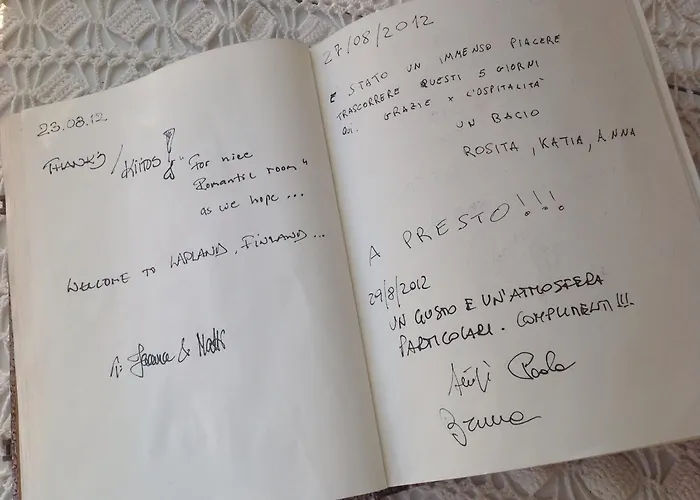 23.08.12
THANKS / KIITOS! "For nice
Romantic room"
as we hope ...
WELCOME TO LAPLAND, FINLAND ...
& Matti
27/08/2012
E STATO UN IMMENSO PIACERE
TRASCORRERE QUESTI 5 GIORNI
QUI. GRAZIE X L'OSPITALITÀ
UN BACIO
ROSITA, KATIA, ANNA
A PRESTO!!!
29/8/2012
UN GUSTO E UN'ATMOSFERA
PARTICOLARI. COMPLIMENTI!!!
Paola
Bruno